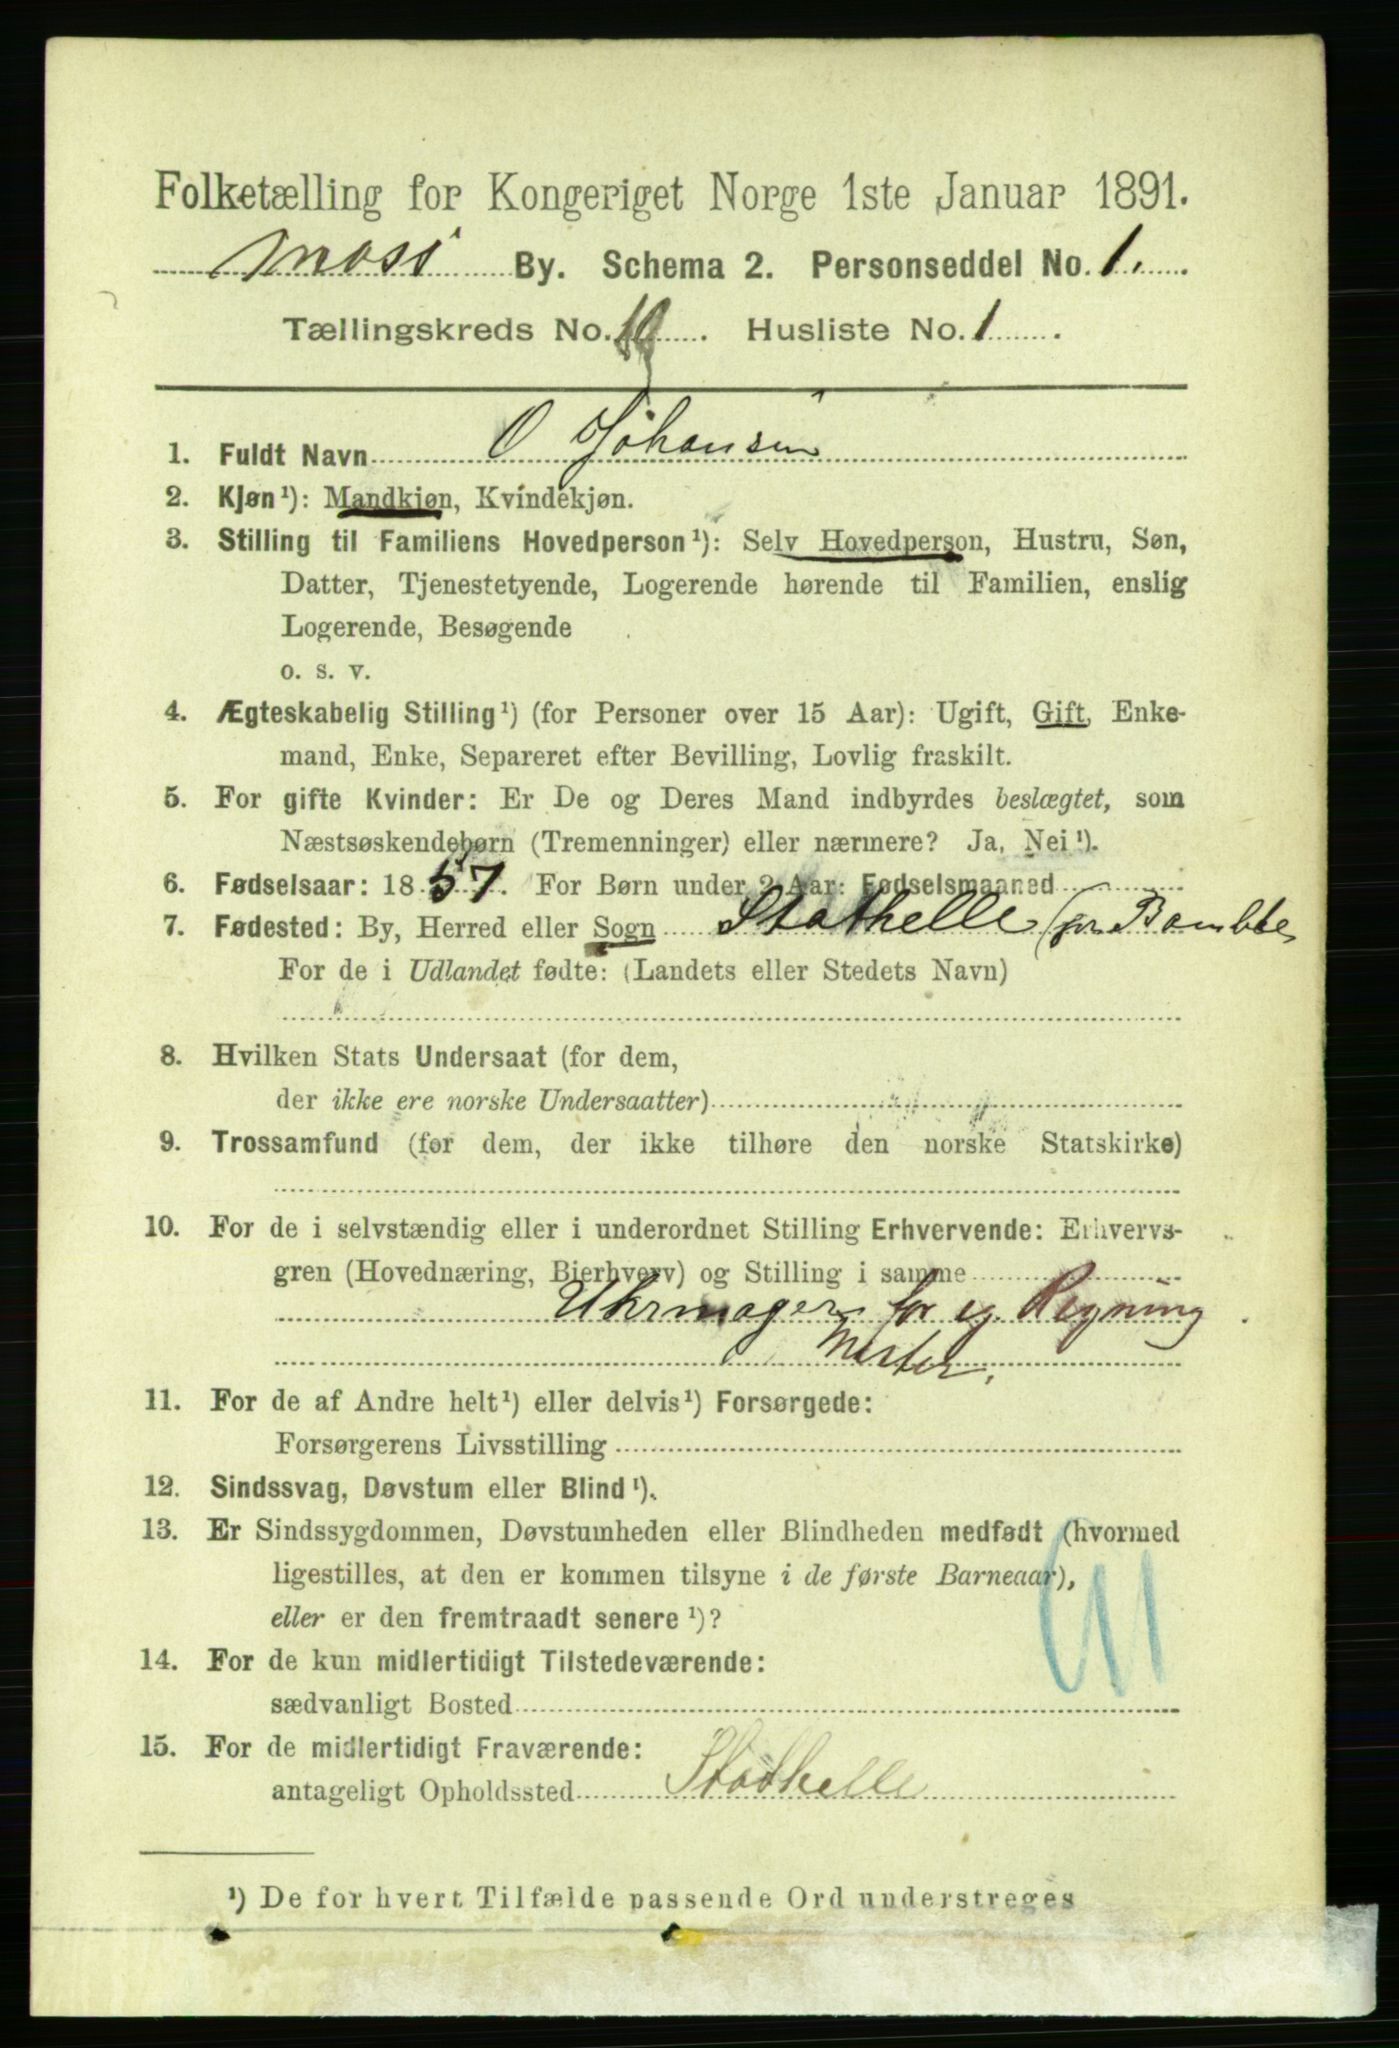 Folketælling for Kongeriget Norge 1ste Januar 1891.
Moss By. Schema 2. Personseddel No. 1.
Tællingskreds No. 10. Husliste No. 1.
1. Fuldt Navn O Johansen
2. Kjøn¹): Mandkjøn, Kvindekjøn.
3. Stilling til Familiens Hovedperson¹): Selv Hovedperson, Hustru, Søn,
Datter, Tjenestetyende, Logerende hørende til Familien, enslig
Logerende, Besøgende
o. s. v.
4. Ægteskabelig Stilling¹) (for Personer over 15 Aar): Ugift, Gift, Enke-
mand, Enke, Separeret efter Bevilling, Lovlig fraskilt.
5. For gifte Kvinder: Er De og Deres Mand indbyrdes beslægtet, som
Næstsøskendebørn (Tremenninger) eller nærmere? Ja, Nei¹).
6. Fødselsaar: 1857. For Børn under 2 Aar: Fødselsmaaned
7. Fødested: By, Herred eller Sogn Stathelle (pr Bamble
For de i Udlandet fødte: (Landets eller Stedets Navn)
8. Hvilken Stats Undersaat (for dem,
der ikke ere norske Undersaatter)
9. Trossamfund (for dem, der ikke tilhøre den norske Statskirke)
10. For de i selvstændig eller i underordnet Stilling Erhvervende: Erhvervs-
gren (Hovednæring, Bierhverv) og Stilling i samme
Uhrmager for eg. Regning
Mester.
11. For de af Andre helt¹) eller delvis¹) Forsørgede:
Forsørgerens Livsstilling
12. Sindssvag, Døvstum eller Blind¹).
13. Er Sindssygdommen, Døvstumheden eller Blindheden medfødt (hvormed
ligestilles, at den er kommen tilsyne i de første Barneaar),
eller er den fremtraadt senere¹)?
14. For de kun midlertidigt Tilstedeværende:
sædvanligt Bosted
15. For de midlertidigt Fraværende:
antageligt Opholdssted Stathelle
¹) De for hvert Tilfælde passende Ord understreges